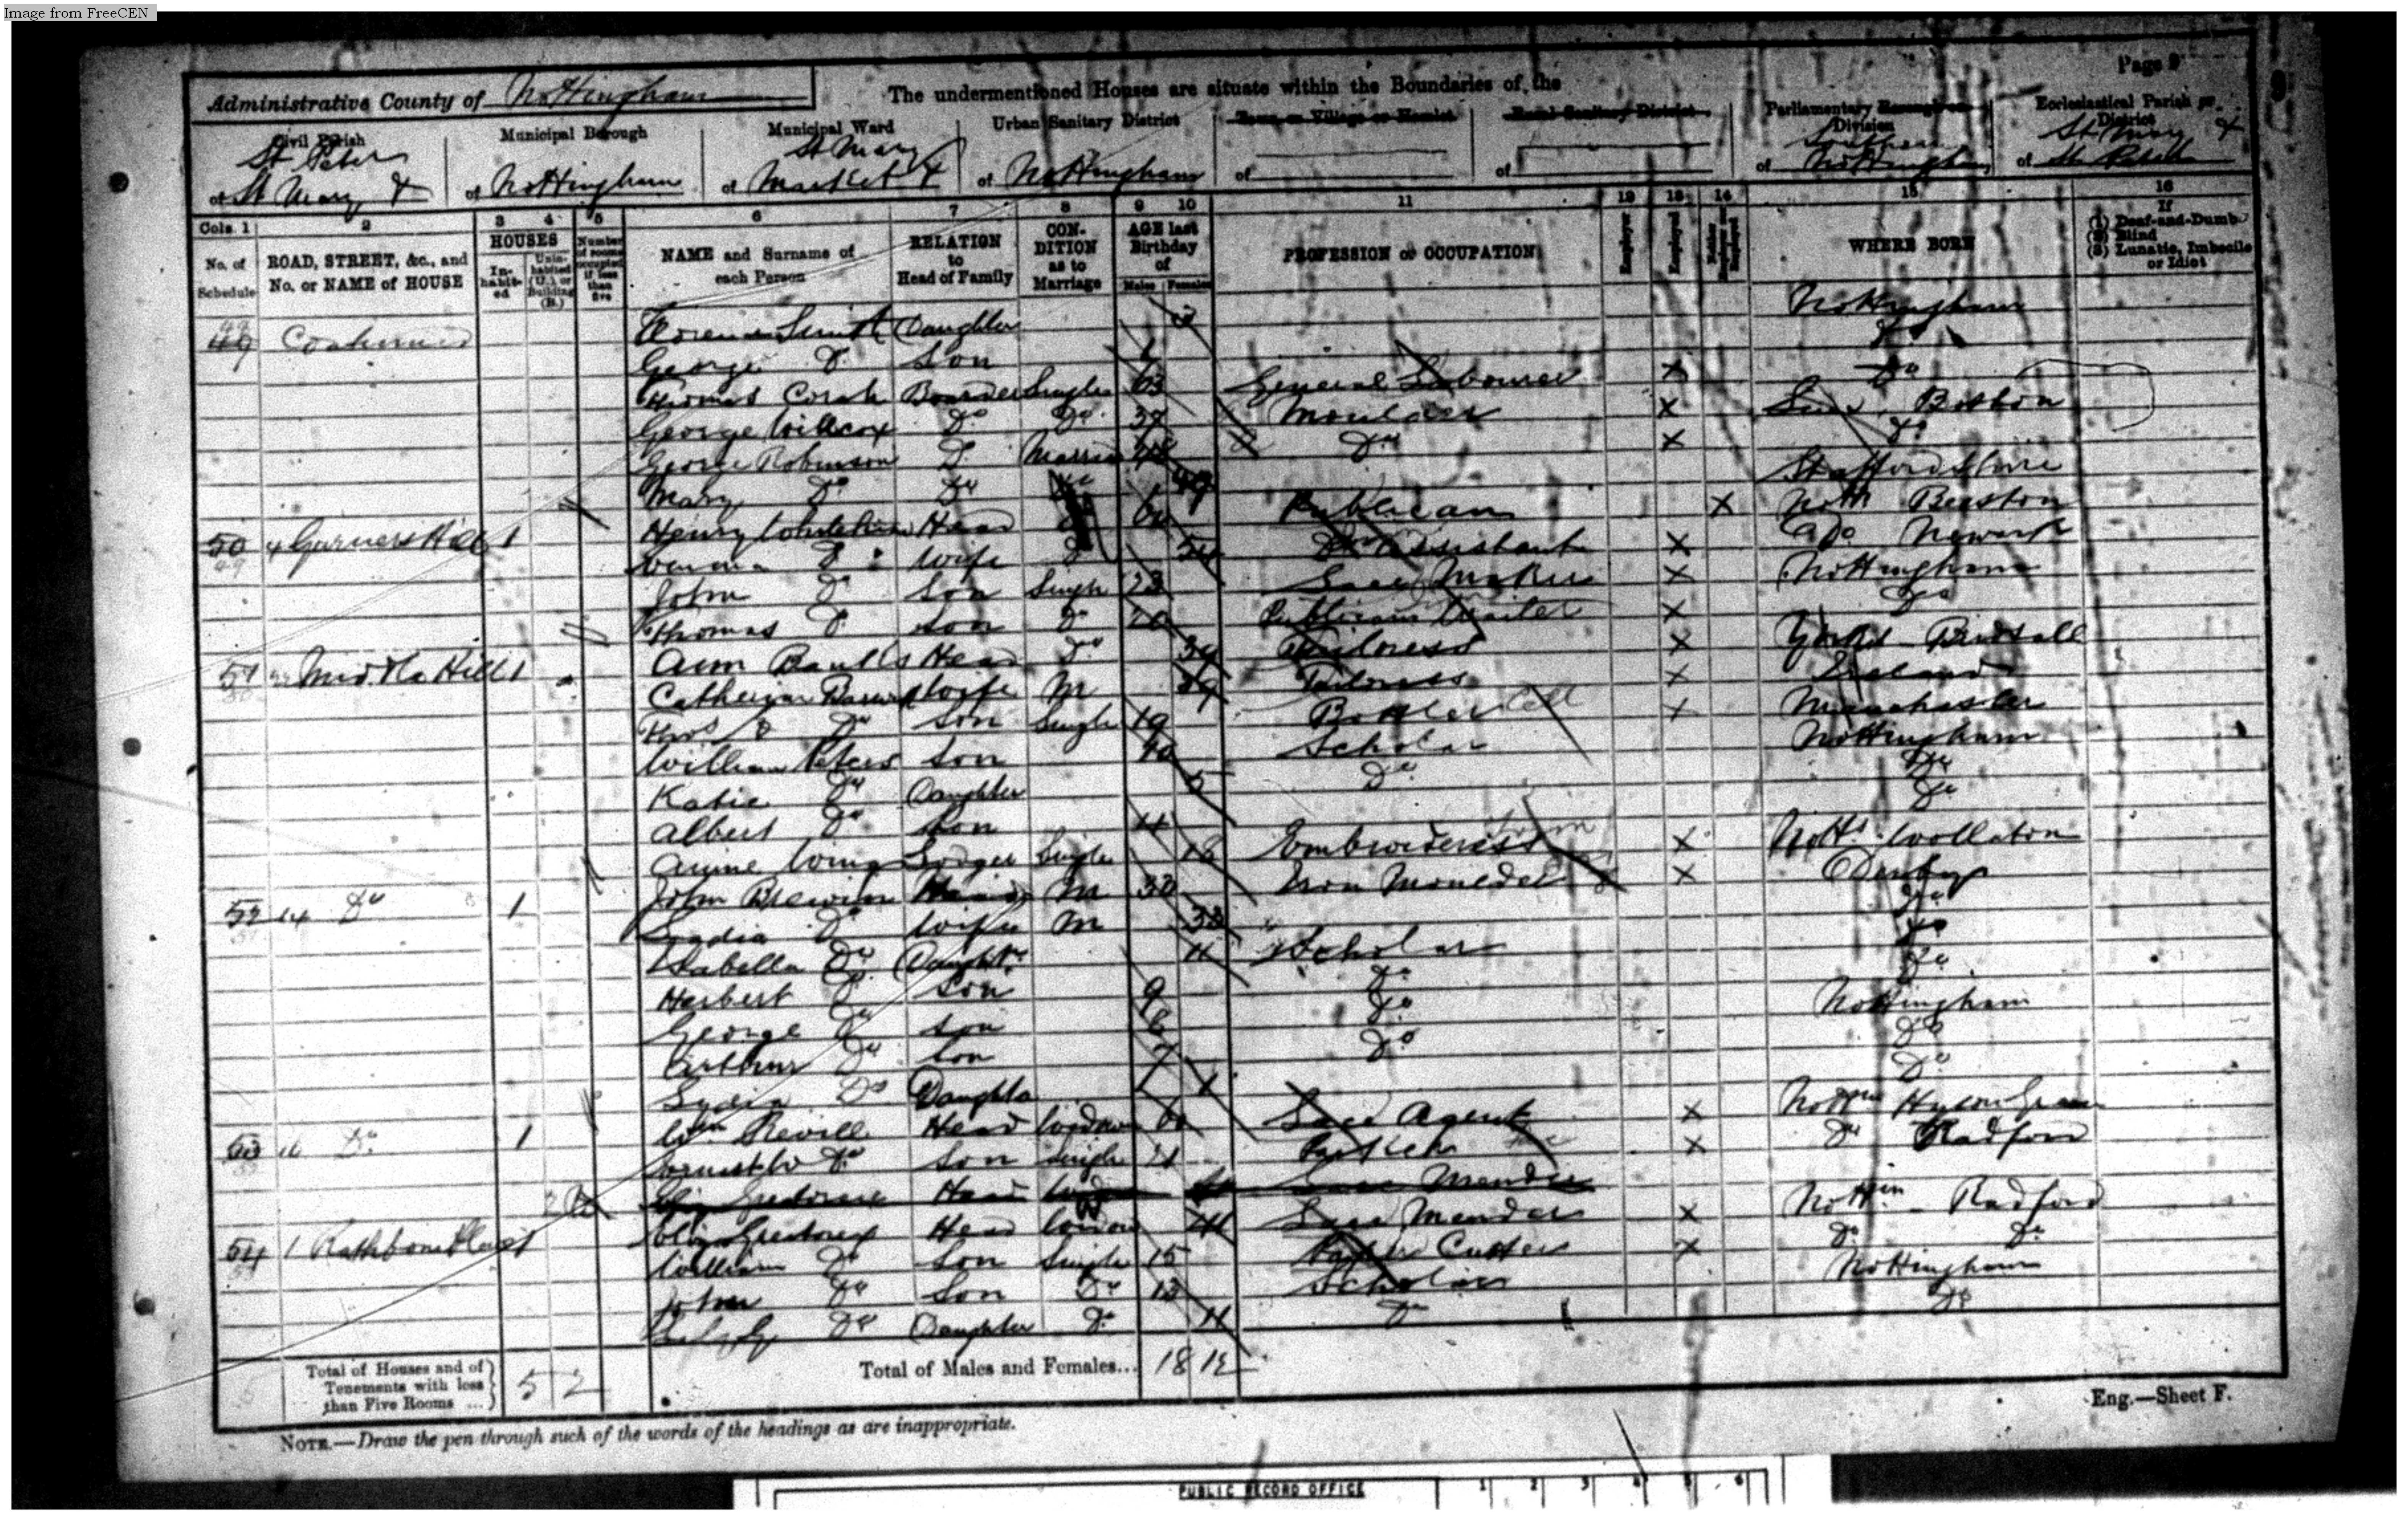 Image from FreeCEN
Page 9
9
Administrative County of Nottingham
The undermentioned Houses are situate within the Boundaries of the
Civil Parish
St Peter
of St Mary &
Municipal Borough
of Nottingham
Municipal Ward
St Mary
of Market &
Urban Sanitary District
of Nottingham
Town or Village or Hamlet
of
Rural Sanitary District
of
Parliamentary Borough or
Division
Southern
of Nottingham
Ecclesiastical Parish or
District
St Mary &
of St Peter
Cols. 1 2 3 4 5 6 7 8 9 10 11 12 13 14 15 16
No. of Schedule
ROAD, STREET, &c., and No. or NAME of HOUSE
HOUSES
In-habit-ed
Unin-habited (U.), or Building (B.)
Number of rooms occupied if less than five
NAME and Surname of each Person
RELATION to Head of Family
CON-DITION as to Marriage
AGE last Birthday of
Males Females
PROFESSION or OCCUPATION
Employer
Employed
Neither Employer nor Employed
WHERE BORN
If
(1) Deaf-and-Dumb
(2) Blind
(3) Lunatic, Imbecile or Idiot
49 Continued Florence Smith Daughter Nottingham
George Do Son Do
Thomas Corah Boarder Single 63 General Labourer X Do
George Willcox Do Do 37 Moulder X Boston
George Robinson Do Married Do X Do
Mary Do Do 49 Staffordshire
50 4 Garners Hill 1 Henry Head 60 Publican X Beeston
Emma Do Wife 54 Do Assistant X Do Newark
John Do Son Single 23 Lace Maker X Nottingham
Thomas Do Son Do 20 Publicans Waiter X Do
51 Middle Hill 1 Ann Banks Head Do Tailoress X Yorks
Catherine Wife M 39 Tailoress X Ireland
Thos Do Son Single 19 Bottler X Manchester
William Peters Son 10 Scholar Nottingham
Katie Do Daughter 5 Do Do
Albert Do Son 4 Do
Annie Lodger Single 18 Embroideress X Notts Woollaton
52 14 Do 1 John Brewin Head M 38 Iron Moulder X Derby
Lydia Do Wife M 38 Do
Isabella Do Daughtr 11 Scholar Do
Herbert Do Son 9 Do Do
George Do Son 8 Do Nottingham
Arthur Do Son 7 Do Do
Lydia Do Daughter 1 Do
53 16 Do 1 Wm Revill Head Widower 60 Lace Agent X Hyson Green
Ernest W Do Son Single 21 X Do Radford
Head Lace Mender
54 1 Rathbone Place 1 Eliza Greatorex Head Widow 44 Lace Mender X Radford
William Do Son Single 15 Paper Cutter X Do Do
John Do Son Do 13 Scholar Nottingham
Do Daughter Do 11 Do Do
Total of Houses and of Tenements with less than Five Rooms ... 5 2
Total of Males and Females... 18 12
Eng.—Sheet F.
NOTE.—Draw the pen through such of the words of the headings as are inappropriate.
PUBLIC RECORD OFFICE 1 2 3 4 5 6